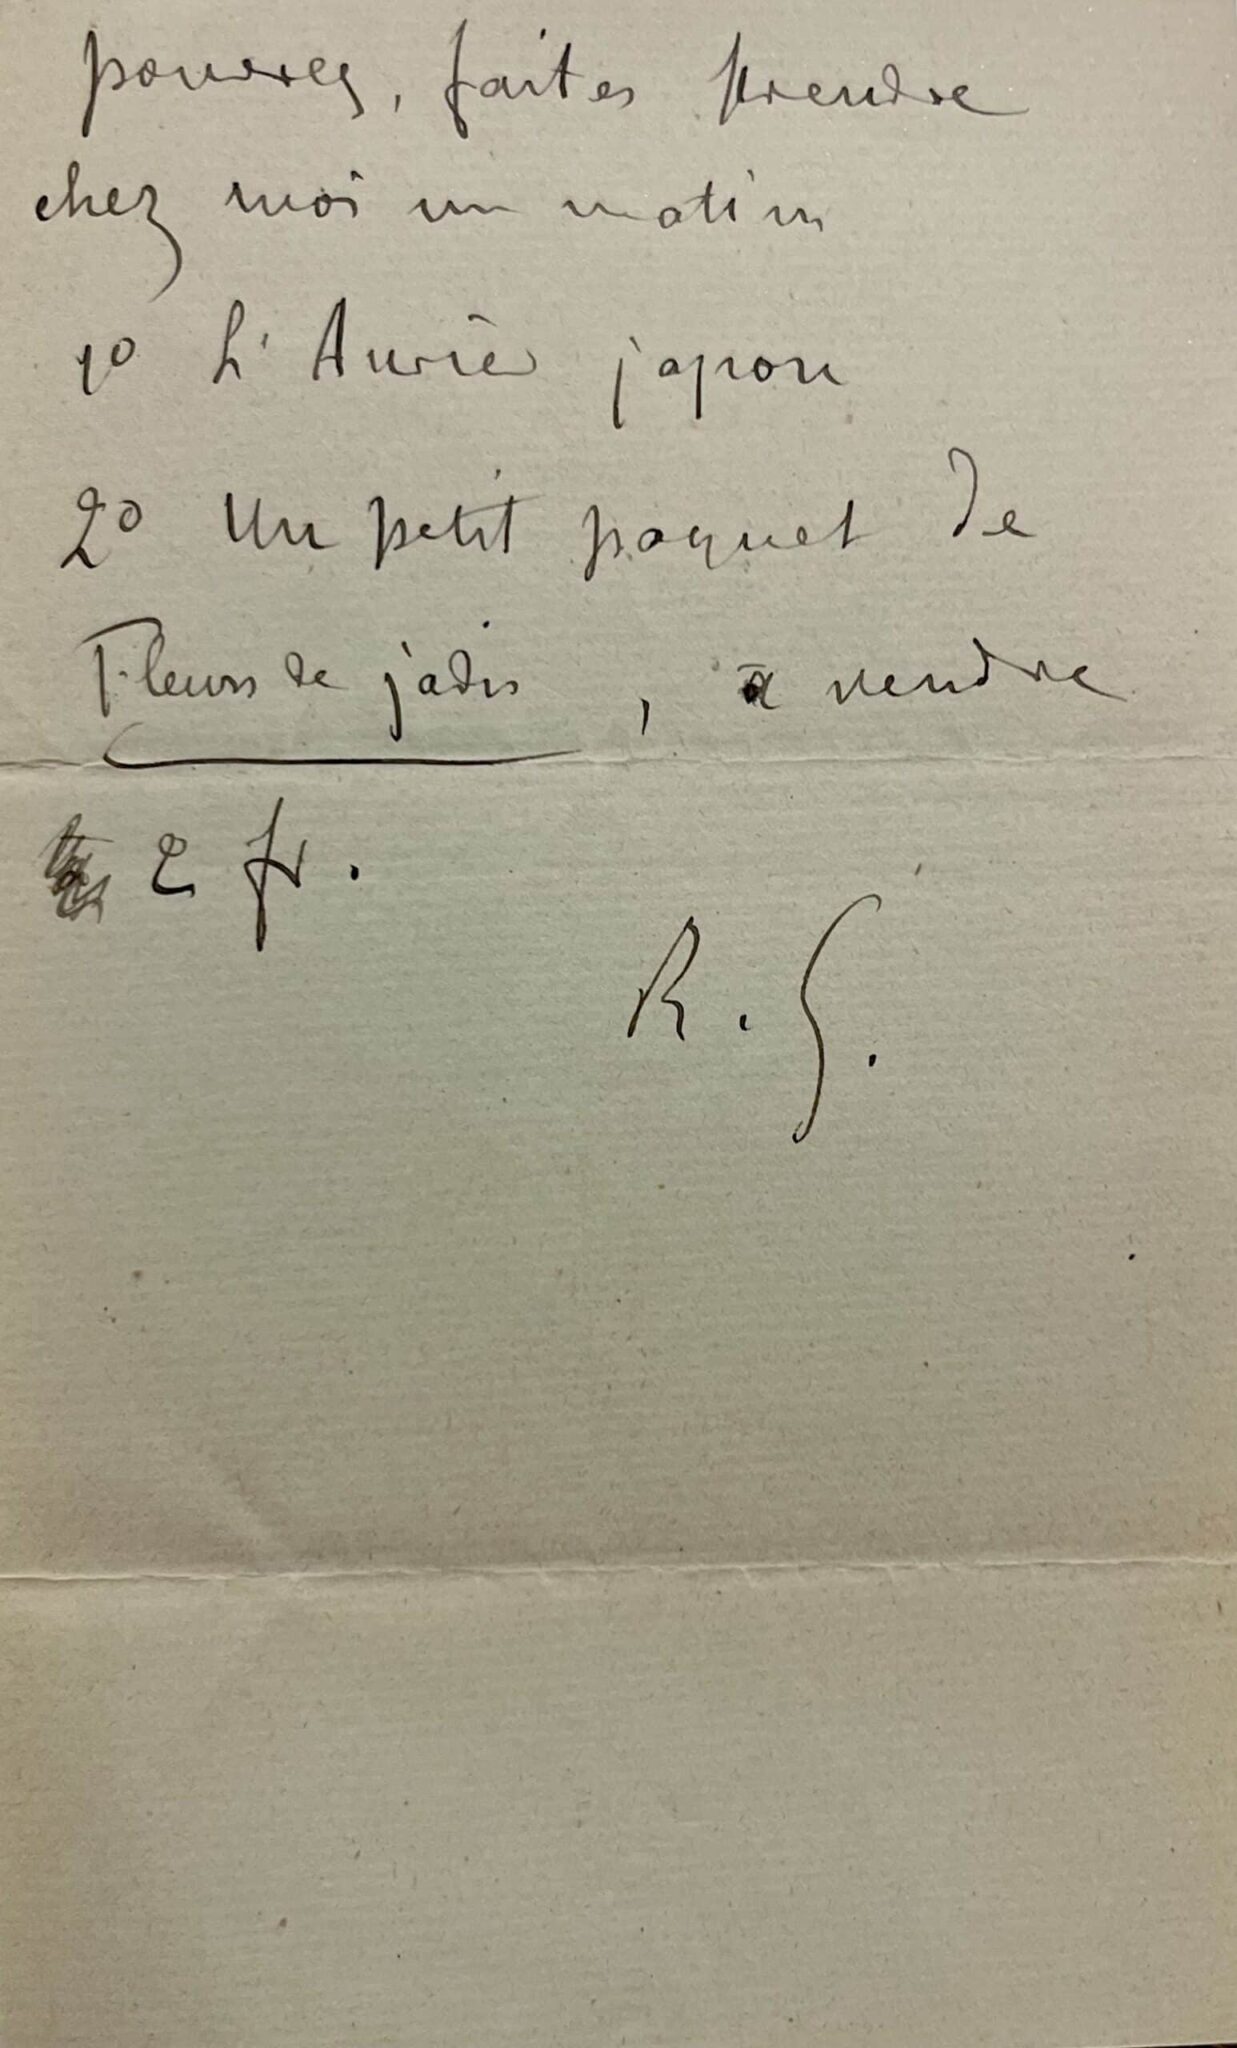 pourrez, faites prendre
chez moi un matin
1o L'Aurier japon
2o Un petit paquet de
Fleurs de jadis, à vendre
2 fr.
R. G.